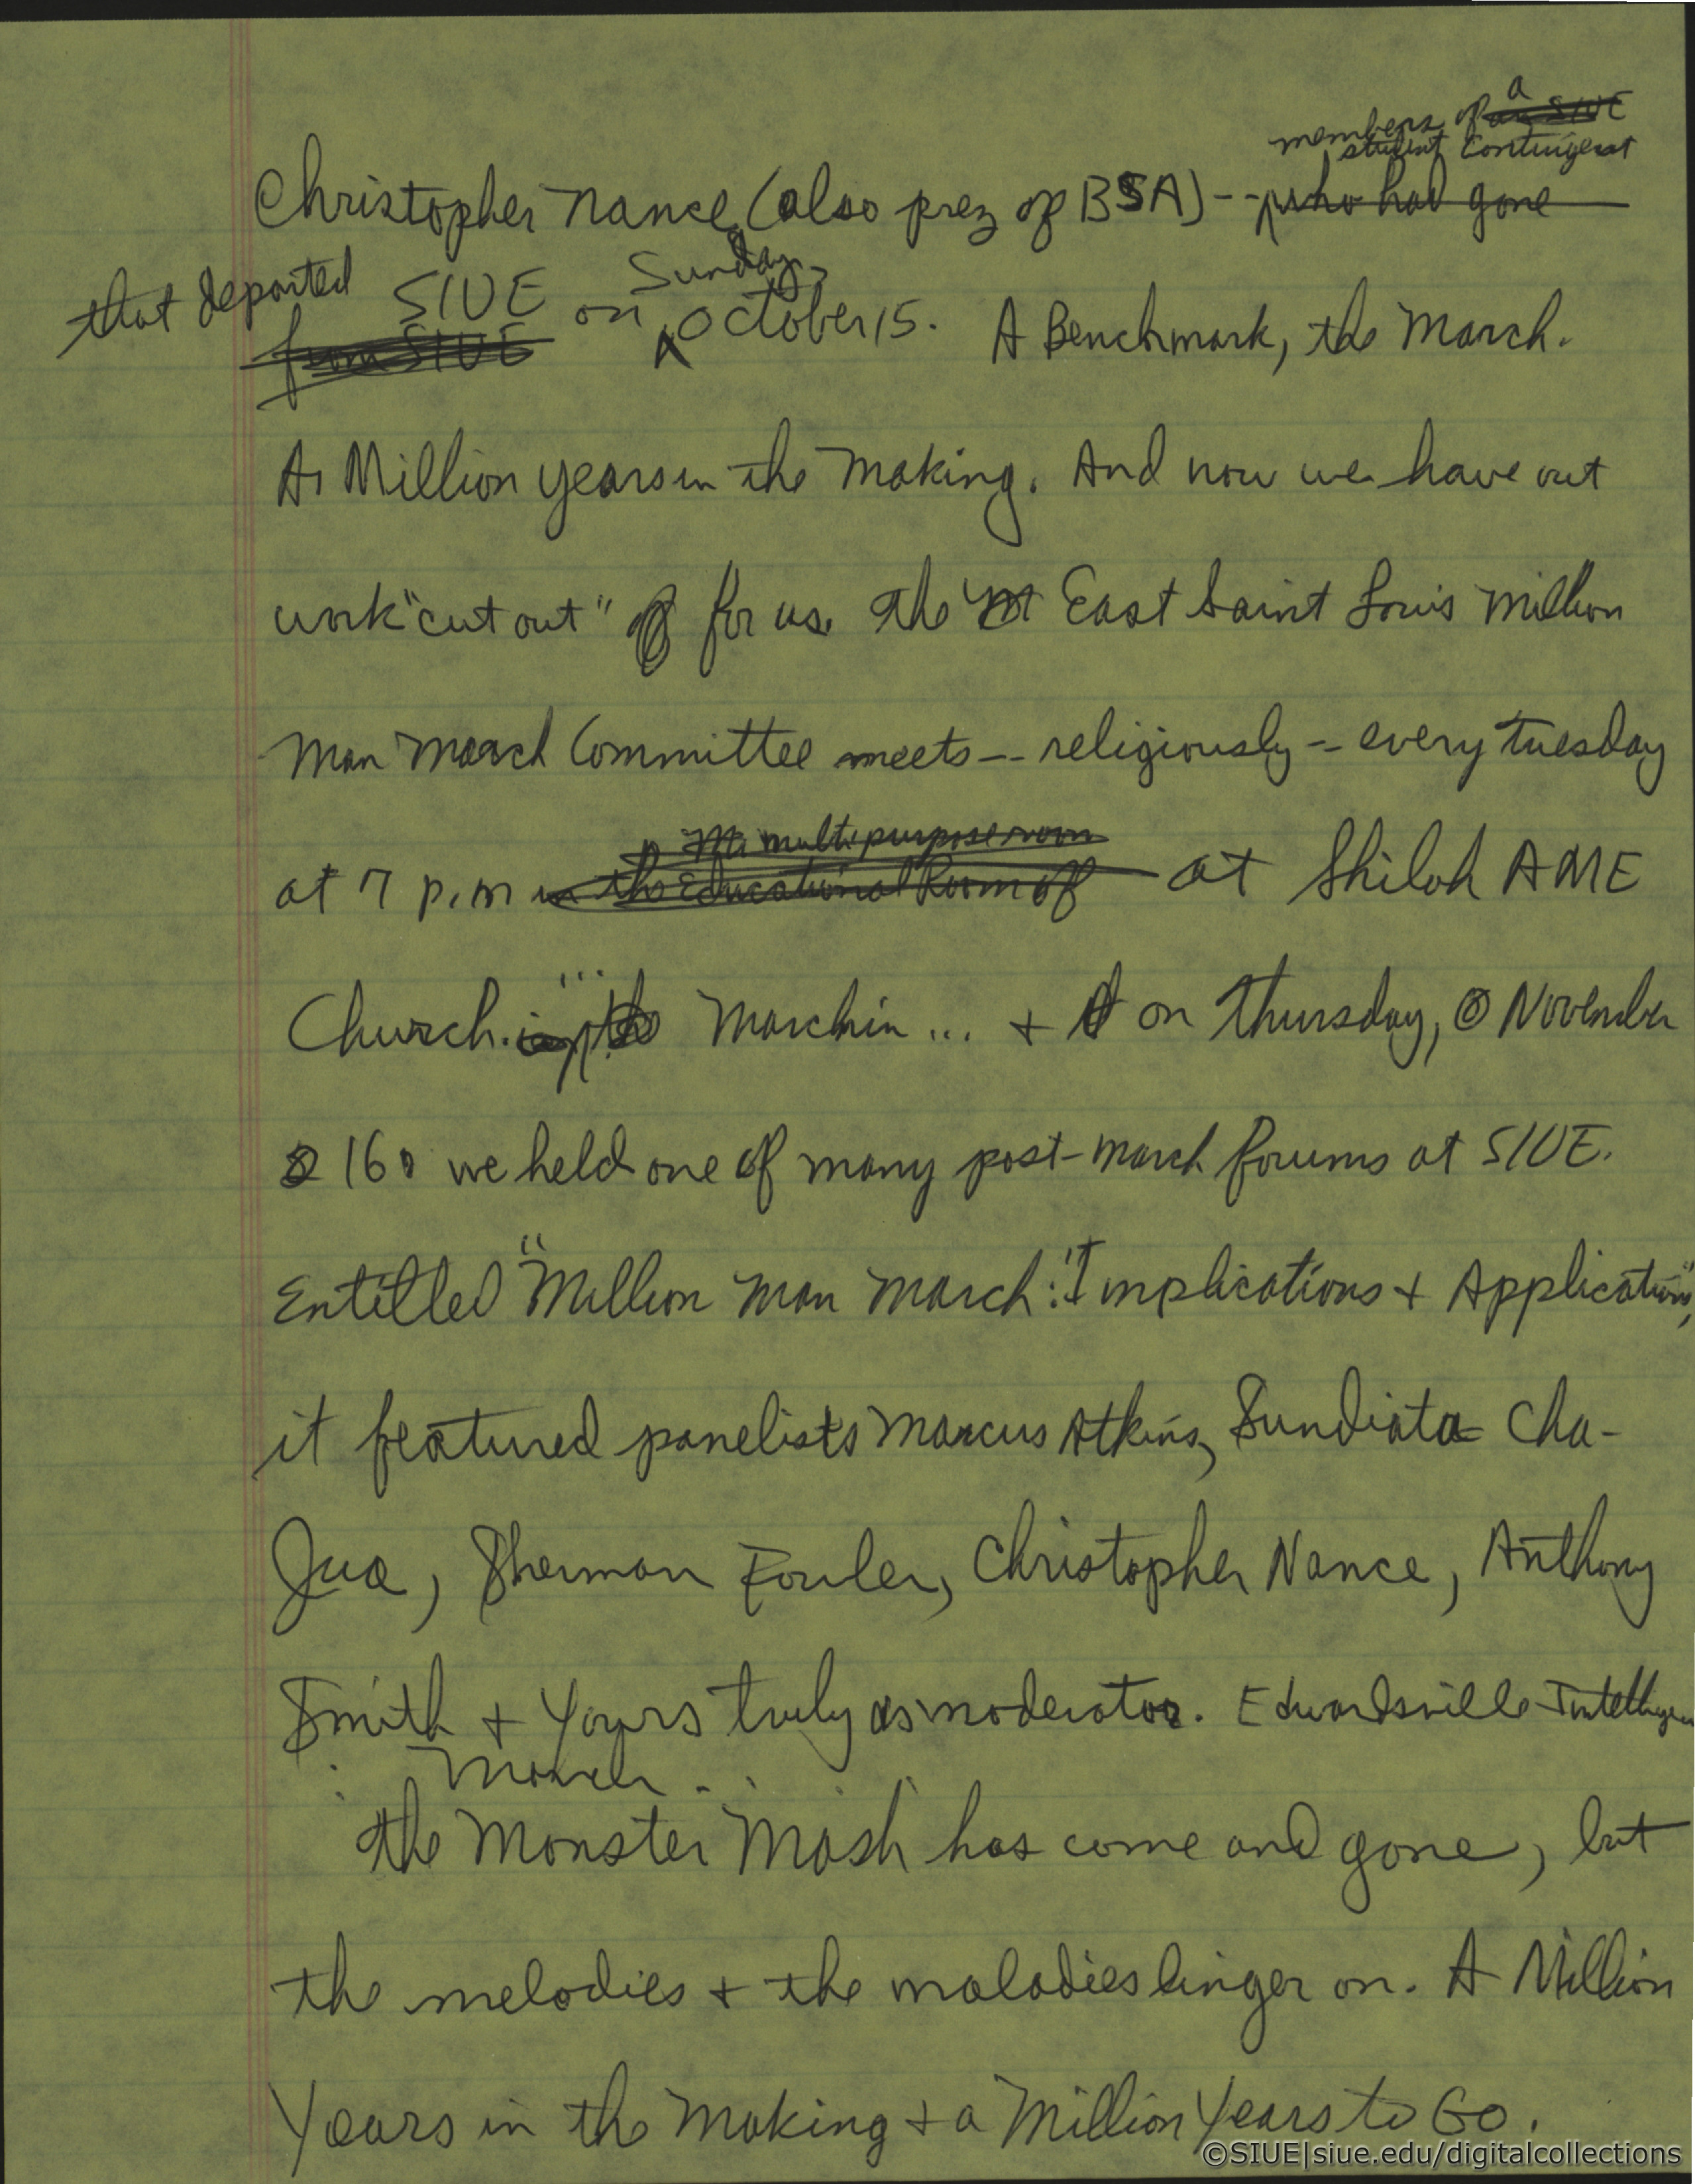 members of a ~~an SIUE~~
student contingent
Christopher Nance (also prez of BSA) -- ~~who had gone~~
that departed SIUE on Sunday, October 15. A Benchmark, the March.
~~from SIUE~~
A Million years in the Making. And now we have out
work "cut out" for us. The East Saint Louis Million
Man March Committee meets -- religiously -- every Tuesday
~~multipurpose room~~
at 7 p.m ~~in the Educational Room of~~ at Shiloh AME
Church. ... Marchin ... + on Thursday, November
16, we held one of many post-march forums at SIUE.
Entitled "Million Man March: Implications + Applications",
it featured panelists Marcus Atkins, Sundiata Cha-
Jua, Sherman Fowler, Christopher Nance, Anthony
Smith + Yours truly as moderator. Edwardsville Intelligen
March ...
The Monster Mash has come and gone, but
the melodies + the maladies linger on. A Million
Years in the Making + a Million Years to Go.
©SIUE|siue.edu/digitalcollections